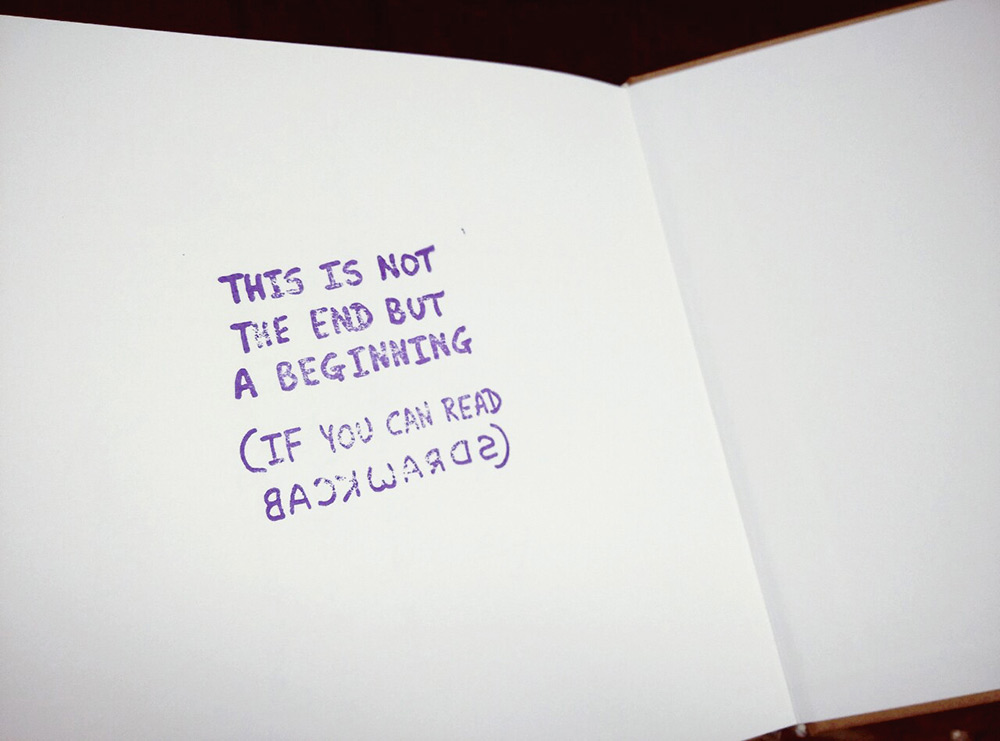 THIS IS NOT
THE END BUT
A BEGINNING
(IF YOU CAN READ
BACKWARDS)